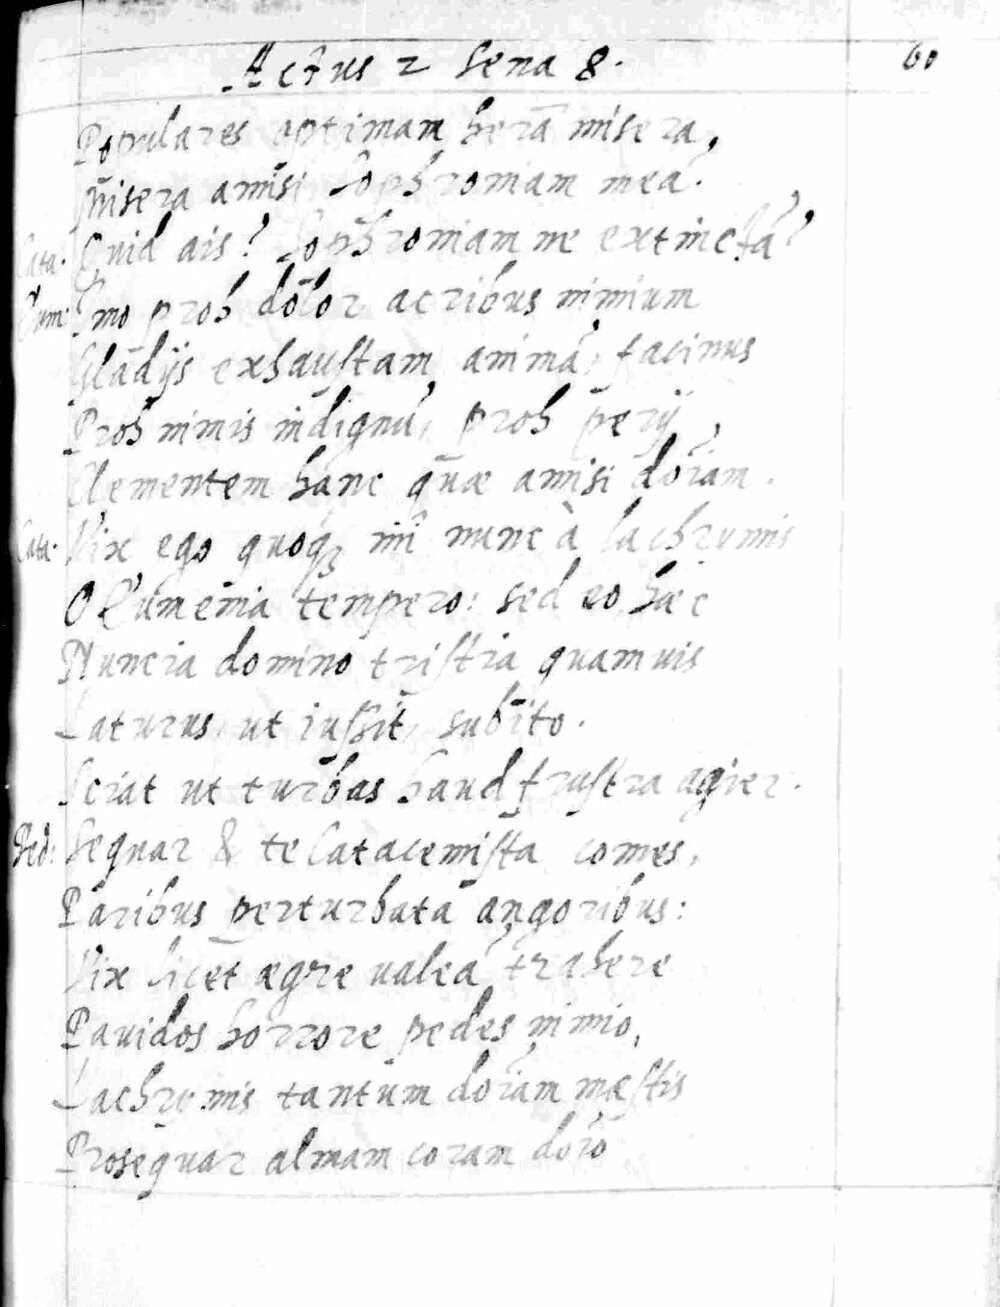 Actus 2 Sena 8. 60
Populares optimam herā misera,
Misera amisi Sophroniam meā.
Cata. Quid ais? Sophroniam ne extinctā?
Eum: Imo proh dolor acribus nimium
Gladijs exhaustam animā, facinus
Proh nimis indignū, proh perij
Clementem hanc quæ amisi dominam.
Cata. Vix ego quoq; nunc à lachrymis
O Eumenia tempero: sed eo hæc
Nuncia domino tristia quamuis
Laturus, ut iussit, subito.
Sciat ut turbas haud frustra agier.
Ped: Sequar & te Catacemista comes,
Paribus perturbata angoribus:
Vix licet ægre valeā trahere
Pauidos horrore pedes nimio,
Lachrymis tantum dōiam mæstis
Prosequar almam coram dōio